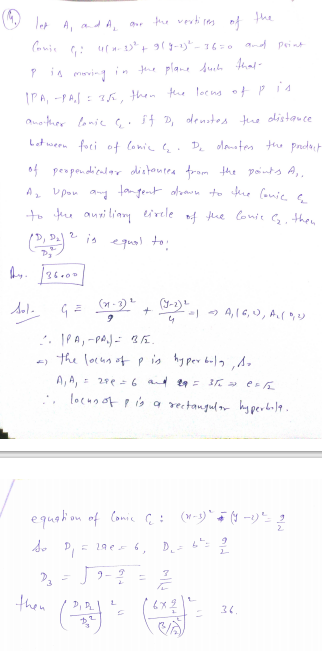 Q. Let A₁ and A₂ are the vertices of the
Conic C₁: 4(x-3)² + 9(y-2)² - 36=0 and point
P is moving in the plane such that
|PA₁ - PA₂| = 3√2, then the locus of P is
another conic C₂. If D₁ denotes the distance
between foci of conic C₂. D₂ denotes the product
of perpendicular distances from the points A₁,
A₂ upon any tangent drawn to the conic C₂
to the auxiliary circle of the conic C₂, then
(D₁D₂/D₃²)² is equal to:
Ans. 36.00
Sol. C₁ ≡ (x-3)²/9 + (y-2)²/4 = 1 ⇒ A₁(6,2), A₂(0,2)
∴ |PA₁ - PA₂| = 3√2.
⇒ the locus of P is hyperbola, So
A₁A₂ = 2ae = 6 and 2a = 3√2 ⇒ e=√2
∴ locus of P is a rectangular hyperbola.
equation of Conic C₂: (x-3)² - (y-2)² = 9/2
So D₁ = 2ae = 6, D₂ = b² = 9/2
D₃ = √(9 - 9/2) = 3/√2
then (D₁D₂/D₃²)² = (6×9/2/(3/√2)²)² = 36.